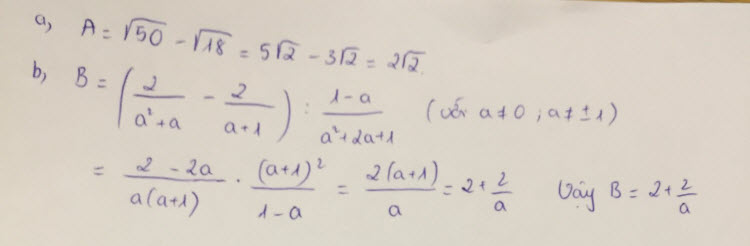 a, A = √50 − √18 = 5√2 − 3√2 = 2√2.
b, B = (2/(a²+a) − 2/(a+1)) : (1−a)/(a²+2a+1) (với a ≠ 0 ; a ≠ ±1)
= (2−2a)/(a(a+1)) · (a+1)²/(1−a) = 2(a+1)/a = 2 + 2/a Vậy B = 2 + 2/a